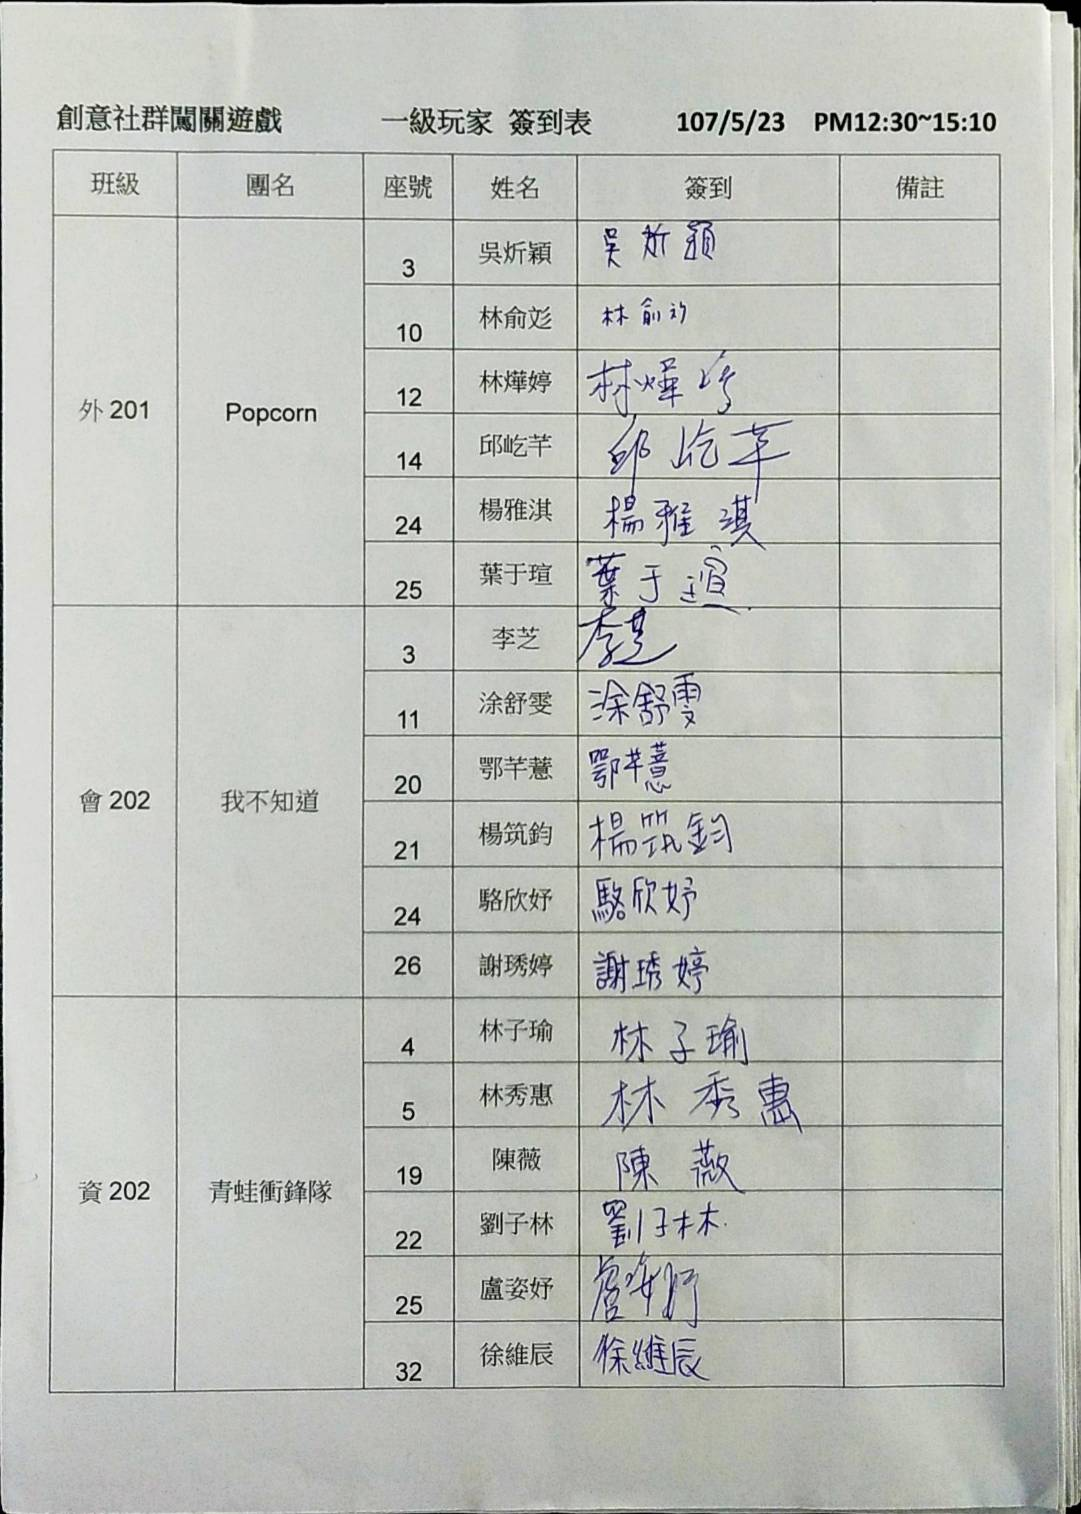 創意社群闖關遊戲 一級玩家 簽到表 107/5/23 PM12:30~15:10
班級 團名 座號 姓名 簽到 備註
外 201 Popcorn
3 吳炘穎 吳炘穎
10 林俞彣 林俞彣
12 林燁婷 林燁婷
14 邱屹芊 邱屹芊
24 楊雅淇 楊雅淇
25 葉于瑄 葉于瑄
會 202 我不知道
3 李芝 李芝
11 涂舒雯 涂舒雯
20 鄂芊薏 鄂芊薏
21 楊筑鈞 楊筑鈞
24 駱欣妤 駱欣妤
26 謝琇婷 謝琇婷
資 202 青蛙衝鋒隊
4 林子瑜 林子瑜
5 林秀惠 林秀惠
19 陳薇 陳薇
22 劉子林 劉子林
25 盧姿妤 盧姿妤
32 徐維辰 徐維辰